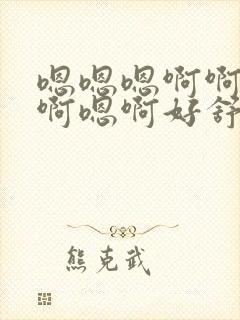 嗯嗯嗯啊啊
啊嗯啊好舒
熊克武